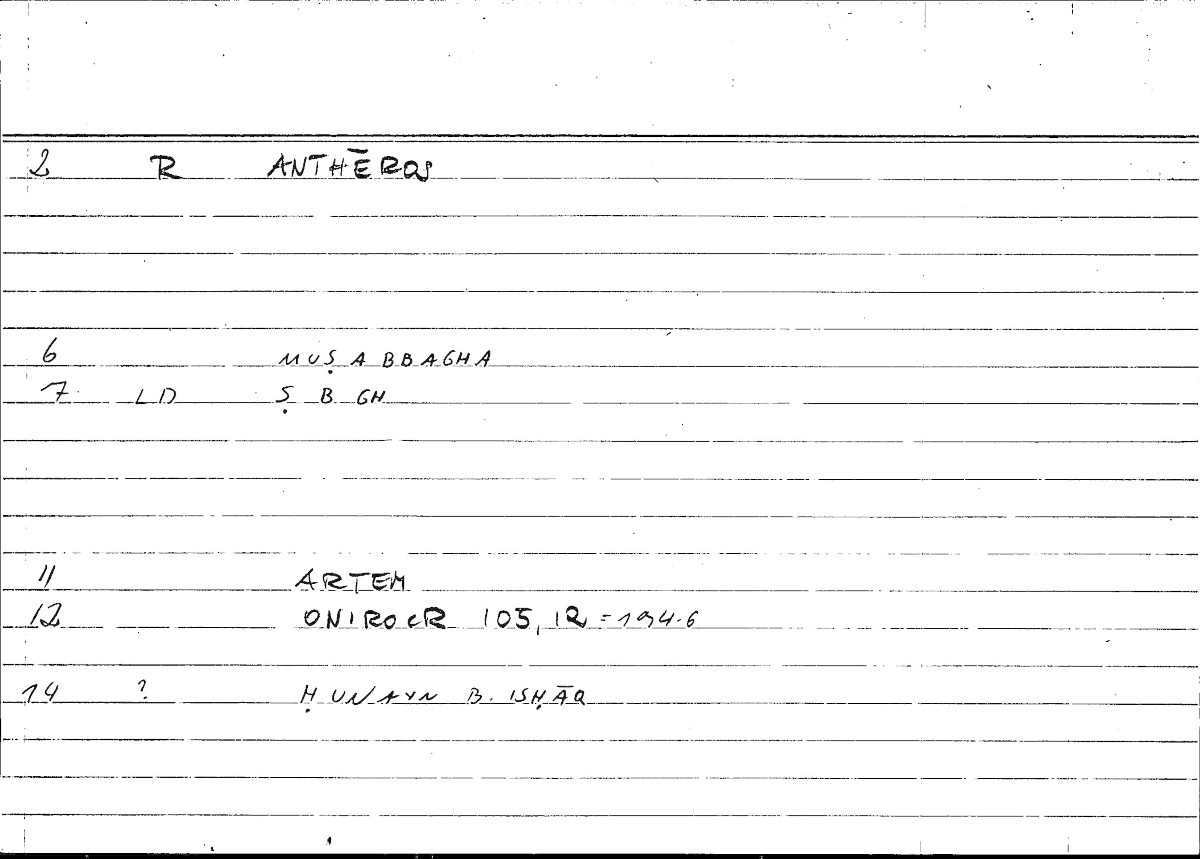 2 R ANTHĒROS
6 MUṢABBAGHA
7 LD Ṣ B GH
11 ARTEM
12 ONIROCR 105,12 = 194.6
14 ? ḤUNAYN B. ISḤĀQ